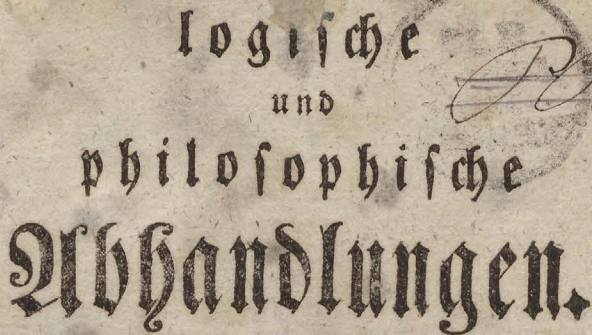 logische
und
philosophische
Abhandlungen.